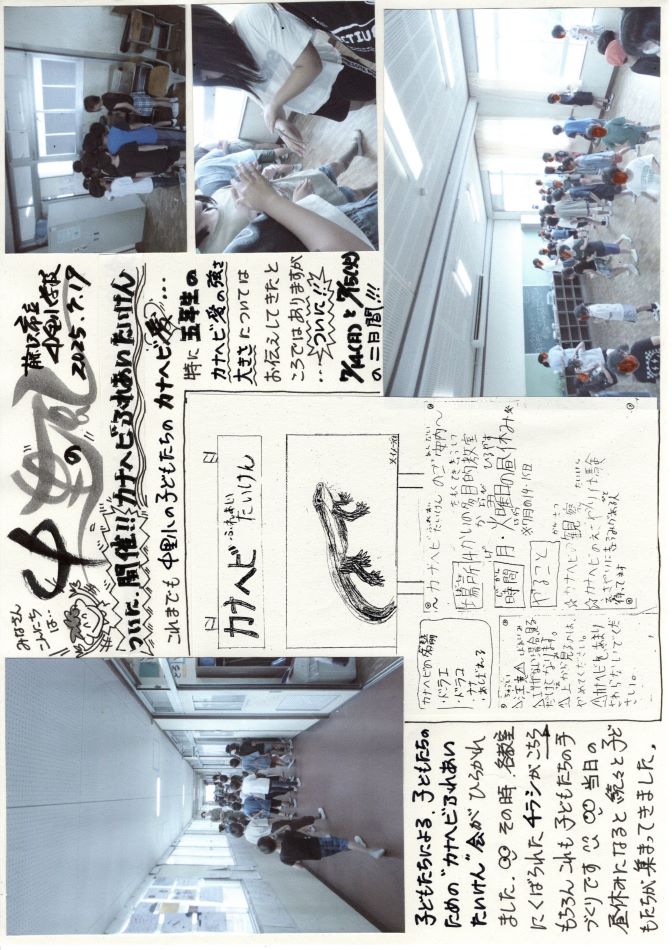 みなさん
こんにちは…
中里の風
藤沢市立
中里小学校
2025.7.17
ついに開催!!カナヘビふれあいたいけん
これまでも中里小の子どもたちのカナヘビ愛…
特に五年生の
カナヘビ愛の強さ
大きさについては
お伝えしてきたと
ころではありますが
…ついに!!
7/14(月)と7/15(火)
の二日間!!!
カナヘビふれあい
たいけん
～カナヘビふれあいたいけんのご案内～
場所
時間 月・火曜日の昼休み
※7月の14・15日
やること
☆カナヘビの観察
☆カナヘビのえさやり体験
待ってます
カナヘビの名前
・ドラエ
・ドラコ
△注意△
△上から見るのは、
やめてください。
△カナヘビをあまり
さわらないでくだ
さい。
子どもたちによる、子どもたちの
ための"カナヘビふれあい
たいけん"会がひらかれ
ました。その時、各教室
にくばられたチラシがこちら
もちろんこれも子どもたちの手
づくりです 当日の
昼休みになると続々と子ど
もたちが集まってきました。